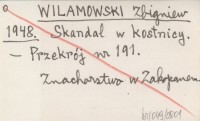 WILAMOWSKI Zbigniew
1948. Skandal w kostnicy.
— Przekrój nr 191.
Znachorstwo w Zakopanem